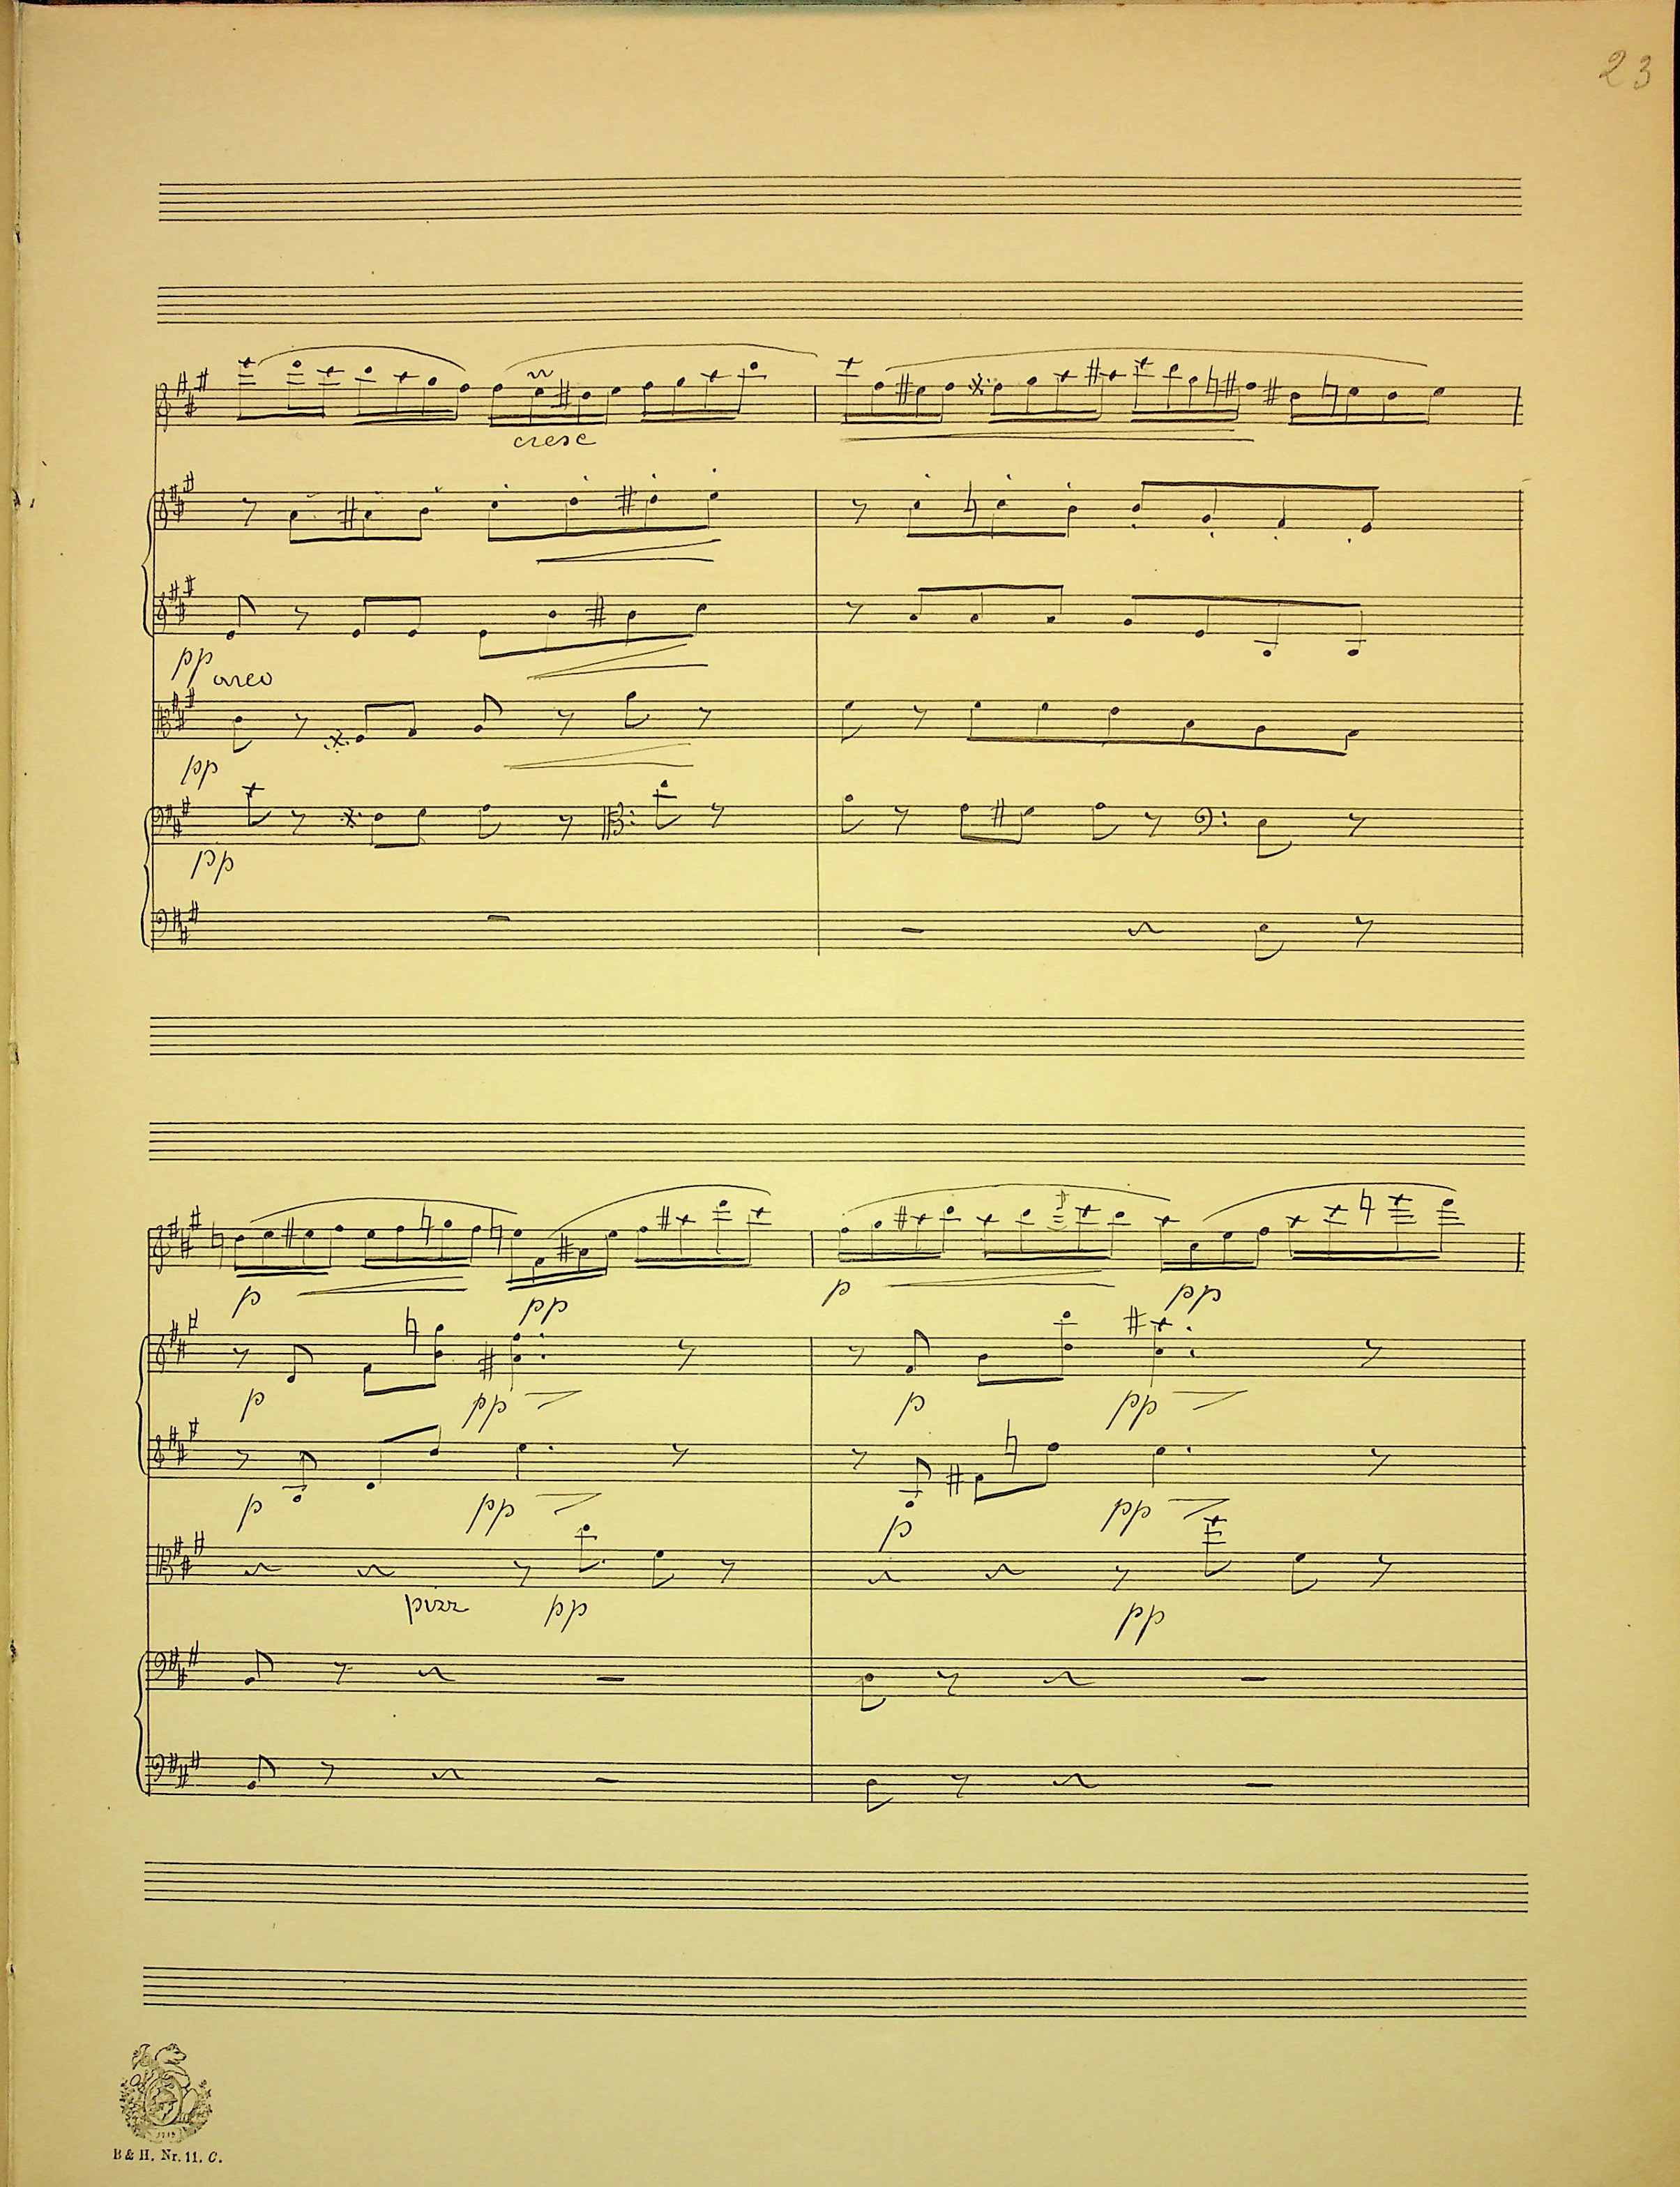 23
cresc
pp
arco
pp
pp
p pp p pp
p pp p pp
p pp p pp
pizz pp pp
1719
B & H. Nr. 11. C.